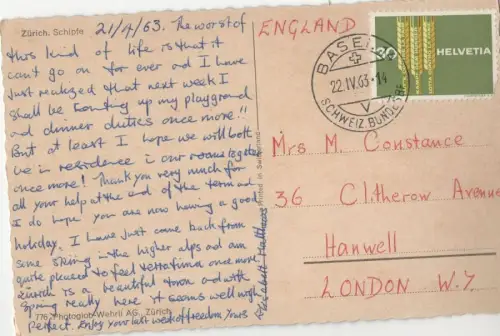 Zürich. Schipfe
21/4/63. The worst of
this kind of life is that it
can't go on for ever and I have
just realized that next week I
shall be counting up my playground
and dinner duties once more!!
But at least I hope we will both
be in residence in our rooms together
once more! Thank you very much for
all your help at the end of the term and
I do hope you are now having a good
holiday. I have just come back from
some skiing in the higher alps and am
quite pleased to feel
once more
Zürich is a beautiful town and with
Spring really here it seems well nigh
perfect. Enjoy your last week of freedom Yours
776 Photoglob-Wehrli AG, Zürich
Printed in Switzerland
ENGLAND
HELVETIA
BASEL
22.IV.63-14
SCHWEIZ. BUNDES
Mrs M. Constance
36 Clitherow Avenue
Hanwell
LONDON W.7.